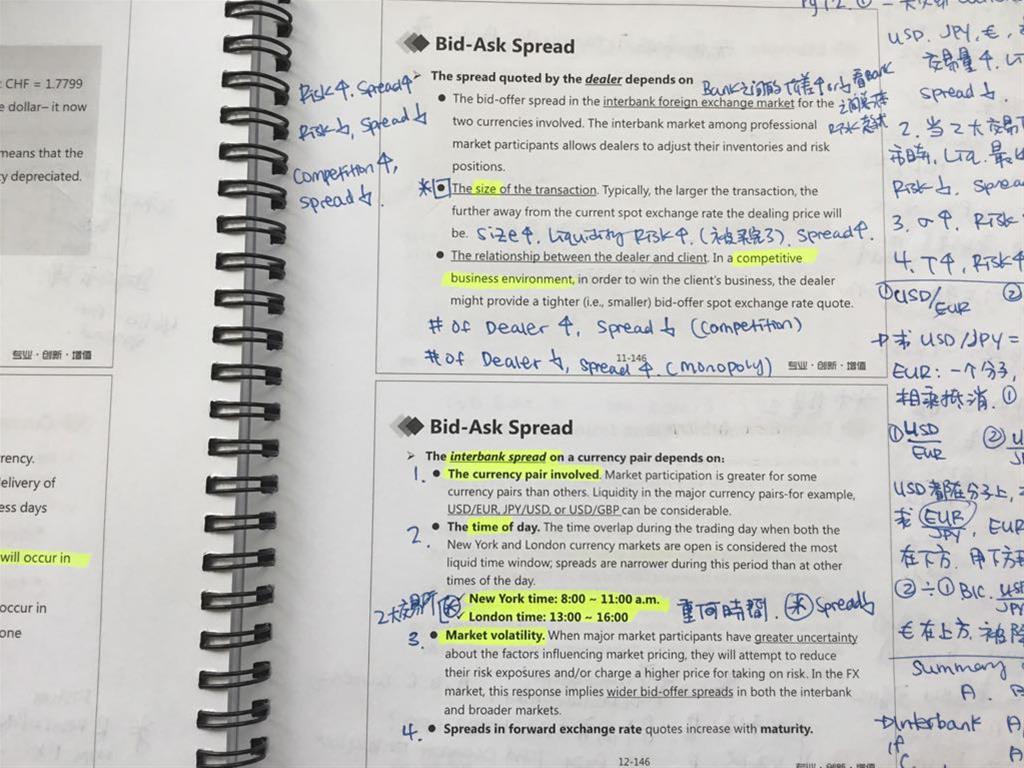 CHF = 1.7799
e dollar– it now
means that the
y depreciated.
专业·创新·增值
rency.
delivery of
ess days
will occur in
occur in
one
Risk↑, Spread↑
Risk↓, Spread↓
Competition↑,
Spread↓.
Bid-Ask Spread
The spread quoted by the dealer depends on
The bid-offer spread in the interbank foreign exchange market for the
two currencies involved. The interbank market among professional
market participants allows dealers to adjust their inventories and risk
positions.
The size of the transaction. Typically, the larger the transaction, the
further away from the current spot exchange rate the dealing price will
be. Size↑, Liquidity Risk↑, Spread↑.
The relationship between the dealer and client. In a competitive
business environment, in order to win the client's business, the dealer
might provide a tighter (i.e., smaller) bid-offer spot exchange rate quote.
# of Dealer ↑, Spread ↓ (Competition)
# of Dealer ↓, Spread ↑. (monopoly)
11-146
专业·创新·增值
Bid-Ask Spread
The interbank spread on a currency pair depends on:
1. The currency pair involved. Market participation is greater for some
currency pairs than others. Liquidity in the major currency pairs-for example,
USD/EUR, JPY/USD, or USD/GBP can be considerable.
2. The time of day. The time overlap during the trading day when both the
New York and London currency markets are open is considered the most
liquid time window; spreads are narrower during this period than at other
times of the day.
2大交易所 New York time: 8:00 ~ 11:00 a.m.
London time: 13:00 ~ 16:00
時間. Spread↓
3. Market volatility. When major market participants have greater uncertainty
about the factors influencing market pricing, they will attempt to reduce
their risk exposures and/or charge a higher price for taking on risk. In the FX
market, this response implies wider bid-offer spreads in both the interbank
and broader markets.
4. Spreads in forward exchange rate quotes increase with maturity.
12-146
专业·创新·增值
USD. JPY, €,
交易量↑,
Spread ↓.
2. 当2大交易
Risk↓. Sprea
3. σ↑, Risk
4. T↑, Risk↑
①USD/EUR ②
求 USD/JPY =
EUR: 一个分子,
相乘抵消. ①
①USD/EUR ②
USD都在分子上,
求 EUR/JPY, EUR
在下方.
②÷①
€在上方. 被除
Summary
A. B
Interbank A
if A
C.